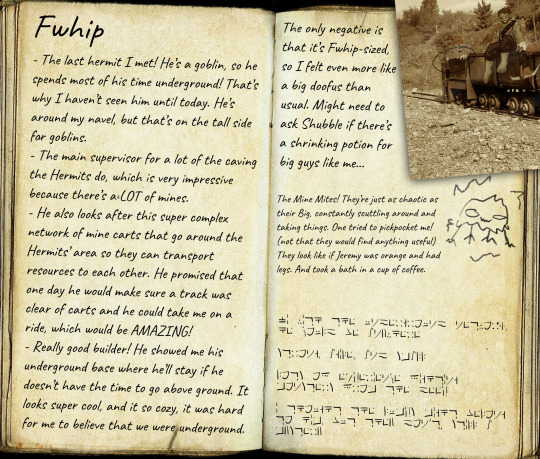 Fwhip
- The last hermit I met! He's a goblin, so he
spends most of his time underground! That's
why I haven't seen him until today. He's
around my navel, but that's on the tall side
for goblins.
- The main supervisor for a lot of the caving
the Hermits do, which is very impressive
because there's a LOT of mines.
- He also looks after this super complex
network of mine carts that go around the
Hermits' area so they can transport
resources to each other. He promised that
one day he would make sure a track was
clear of carts and he could take me on a
ride, which would be AMAZING!
- Really good builder! He showed me his
underground base where he'll stay if he
doesn't have the time to go above ground. It
looks super cool, and it so cozy, it was hard
for me to believe that we were underground.
The only negative is
that it's Fwhip-sized,
so I felt even more like
a big doofus than
usual. Might need to
ask Shubble if there's
a shrinking potion for
big guys like me...
The Mine Mites! They're just as chaotic as
their Big, constantly scuttling around and
taking things. One tried to pickpocket me!
(not that they would find anything useful)
They look like if Jeremy was orange and had
legs. And took a bath in a cup of coffee.